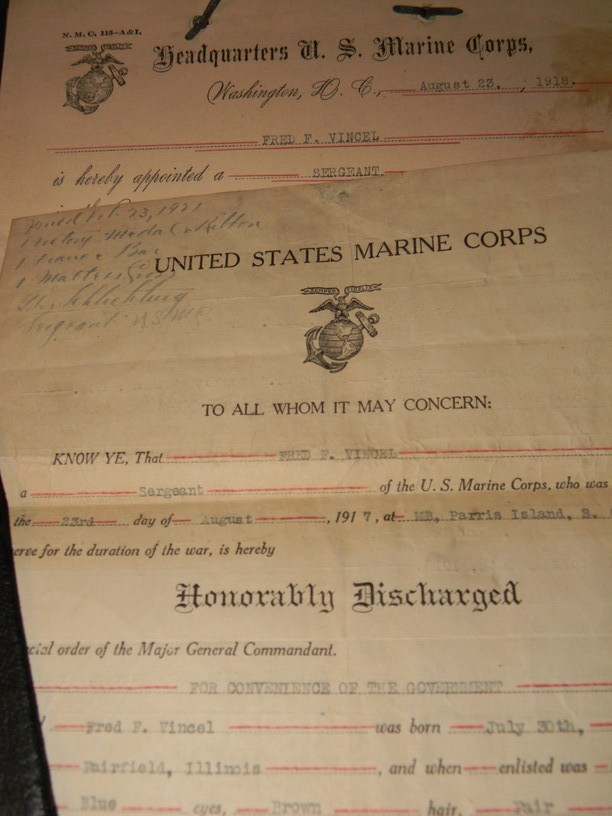 N. M. C. 118-A&I.
Headquarters U. S. Marine Corps,
Washington, D. C., August 23, , 1918.
FRED F. VINCEL
is hereby appointed a SERGEANT
23, 1921
Victory Medal & Ribbon
Bar
Sergeant USMC
UNITED STATES MARINE CORPS
TO ALL WHOM IT MAY CONCERN:
KNOW YE, That FRED F. VINCEL
a Sergeant of the U. S. Marine Corps, who was
the 23rd day of August , 1917, at MB, Parris Island, S.
erve for the duration of the war, is hereby
Honorably Discharged
cial order of the Major General Commandant.
FOR CONVENIENCE OF THE GOVERNMENT
Fred F. Vincel was born July 30th,
Fairfield, Illinois , and when enlisted was
Blue eyes, Brown hair, Fair